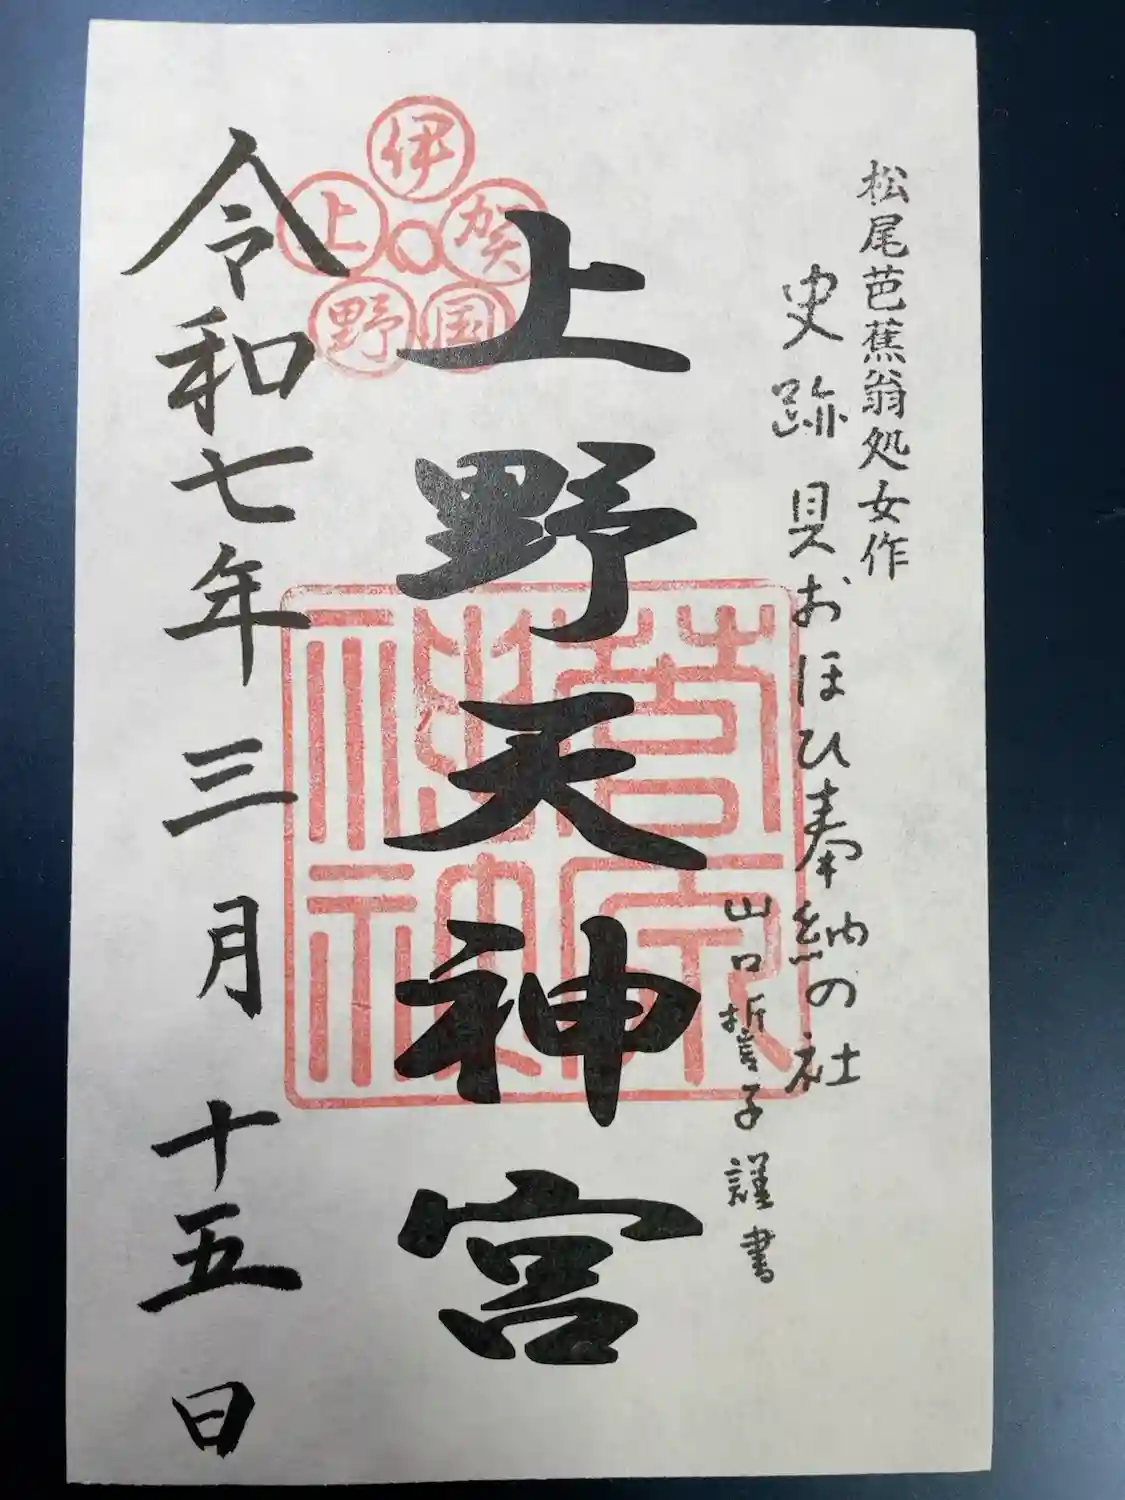 松尾芭蕉翁処女作
史跡 貝おほひ奉納の社
山口誓子謹書
上野天神宮
伊賀国
上野
菅原神社
令和七年三月十五日